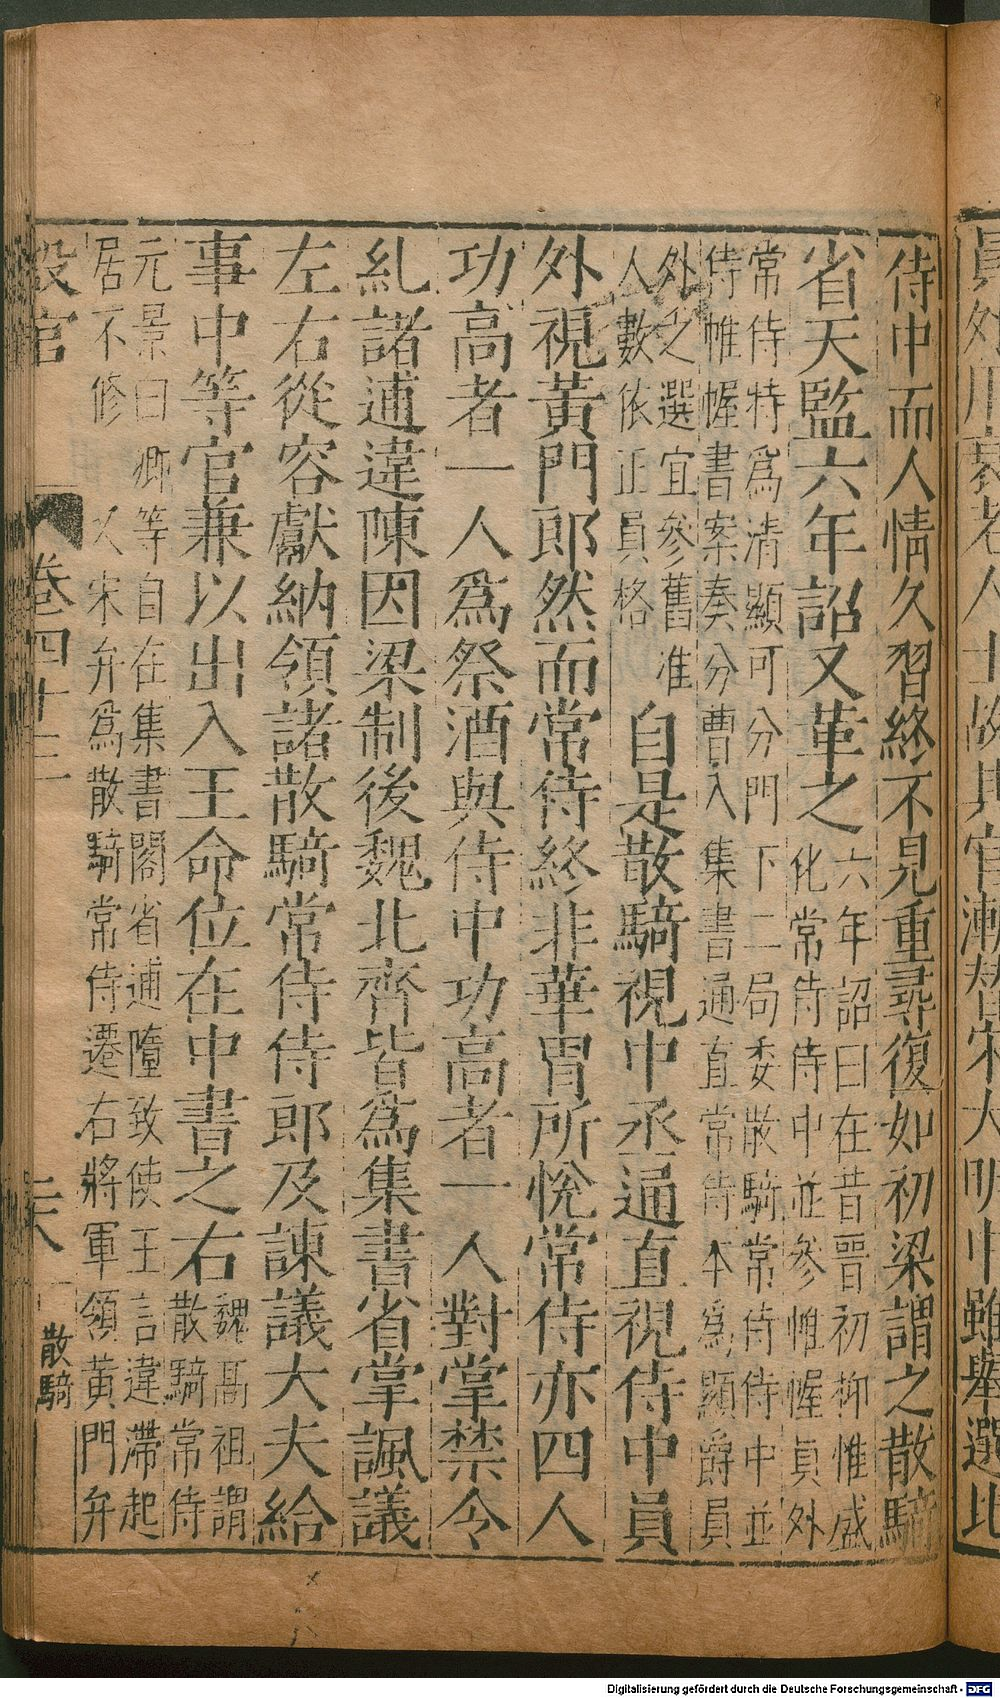 員外用衰老人士故其官漸替宋大明中雖舉選比
侍中而人情久習終不見重尋復如初梁謂之散騎
省天監六年詔又革之
六年詔曰在昔晋初抑惟盛
化常侍侍中並參帷幄員外
常侍特爲清顯可分門下二局委散騎常侍侍中並
侍帷幄書案奏分曹入集書通直常侍本爲顯爵員
外之選宜參舊准
人數依正員格
自是散騎視中丞通直視侍中員
外視黃門郎然而常侍終非華胄所悅常侍亦四人
功高者一人爲祭酒與侍中功高者一人對掌禁令
糺諸逋違陳因梁制後魏北齊皆爲集書省掌諷議
左右從容獻納領諸散騎常侍侍郎及諫議大夫給
事中等官兼以出入王命位在中書之右
魏髙祖謂
散騎常侍
元景曰卿等自在集書閣省逋墮致使王言違滯起
居不修 又宋弁爲散騎常侍遷右將軍領黃門弁
設官 卷四十三
散騎
Digitalisierung gefördert durch die Deutsche Forschungsgemeinschaft - DFG